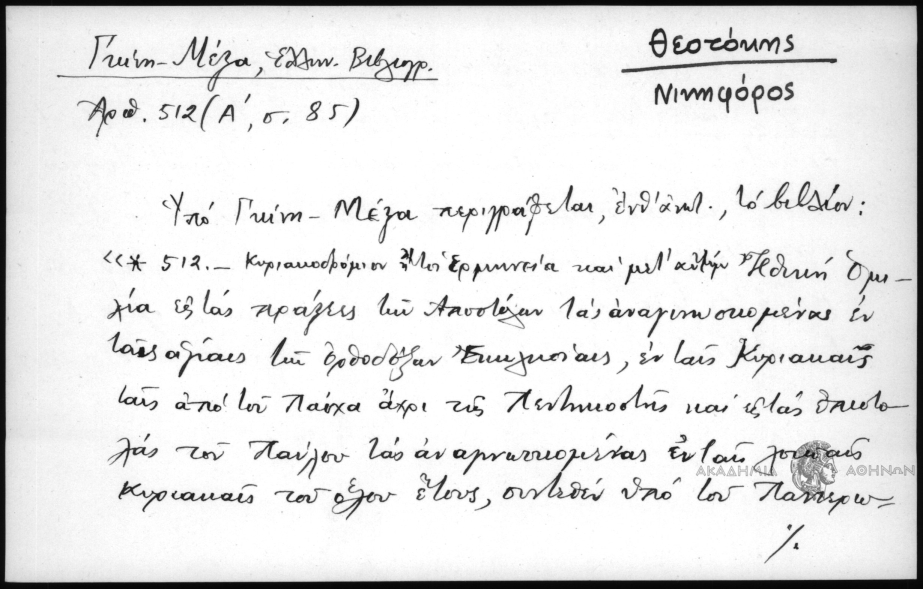 Γκίνη - Μέξα, Ἑλλην. Βιβλιογρ.
Θεοτόκης
Νικηφόρος
Ἀριθ. 512 (Α΄, σ. 85)
Ὑπό Γκίνη - Μέξα περιγράφεται, ἐνθ' ἀνωτ., τό βιβλίον:
«* 512. – Κυριακοδρόμιον ἤτοι Ἑρμηνεία καί μετ' αὐτήν Ἠθική Ὁμι-
λία εἰς τάς πράξεις τῶν Ἀποστόλων τάς ἀναγινωσκομένας ἐν
ταῖς ἁγίαις τῶν ὀρθοδόξων Ἐκκλησίαις, ἐν ταῖς Κυριακαῖς
ταῖς ἀπό τοῦ Πάσχα ἄχρι τῆς Πεντηκοστῆς καί εἰς τάς ἐπιστο-
λάς τοῦ Παύλου τάς ἀναγινωσκομένας ἐν ταῖς λοιπαῖς
Κυριακαῖς τοῦ ὅλου ἔτους, συντεθέν ὑπό τοῦ Πανιερω-
./.
ΑΚΑΔΗΜΙΑ ΑΘΗΝΩΝ